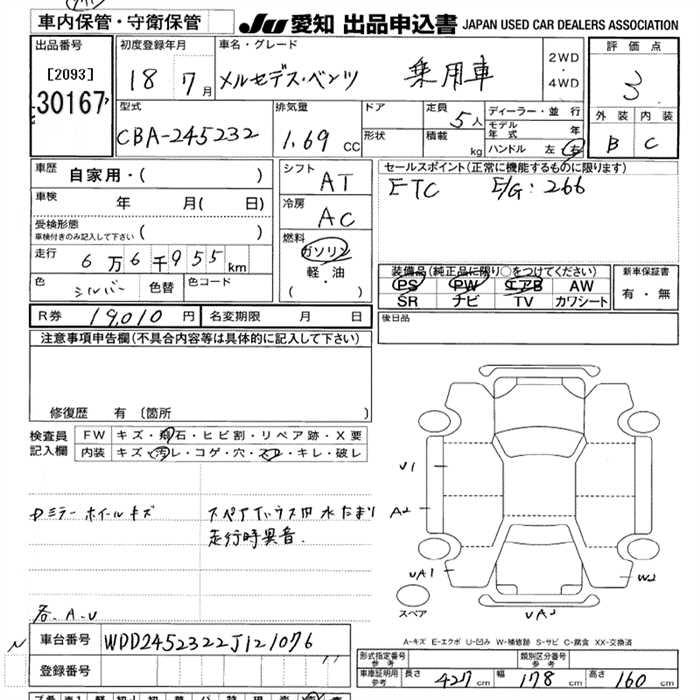 車内保管・守衛保管 JU 愛知 出品申込書 JAPAN USED CAR DEALERS ASSOCIATION
出品番号 初度登録年月 車名・グレード 評価点
[2093] 18 7月 メルセデス・ベンツ 乗用車 2WD・4WD 3
30167
型式 排気量 ドア 定員 ディーラー・並行 外装 内装
CBA-245232 1.69 CC 5人 モデル年式 年 B C
形状 積載 kg ハンドル 左 右
車歴 自家用・( ) シフト AT セールスポイント(正常に機能するものに限ります)
車検 年 月( 日) 冷房 AC ETC E/G: 266
受検形態
車検付きのみ記入して下さい ( ) 燃料
走行 6万6千955km ガソリン
色 シルバー 色替 色コード 軽・油 装備品(純正品に限り○をつけてください) 新車保証書
( ・ ) PS PW エアB AW 有・無
SR ナビ TV カワシート
R券 19,010円 名変期限 月 日 後日品
注意事項申告欄(不具合内容等は具体的に記入して下さい)
修復歴 有 (箇所 )
検査員 FW キズ・飛石・ヒビ割・リペア跡・X要
記入欄 内装 キズ・汚レ・コゲ・穴・スレ・キレ・破レ
U1
ミラー ホイールキズ スペアハウス内 水たまり A2
走行時異音
UA1 W2
スペア UA2
各 A.U
A-キズ E-エクボ U-凹み W-補修跡 S-サビ C-腐食 XX-交換済
N 車台番号 WDD2452322J121076
登録番号 〃 形式指定番号 参考 類別区分番号 参考
車庫証明用 参考 長さ 427cm 幅 178cm 高さ 160cm